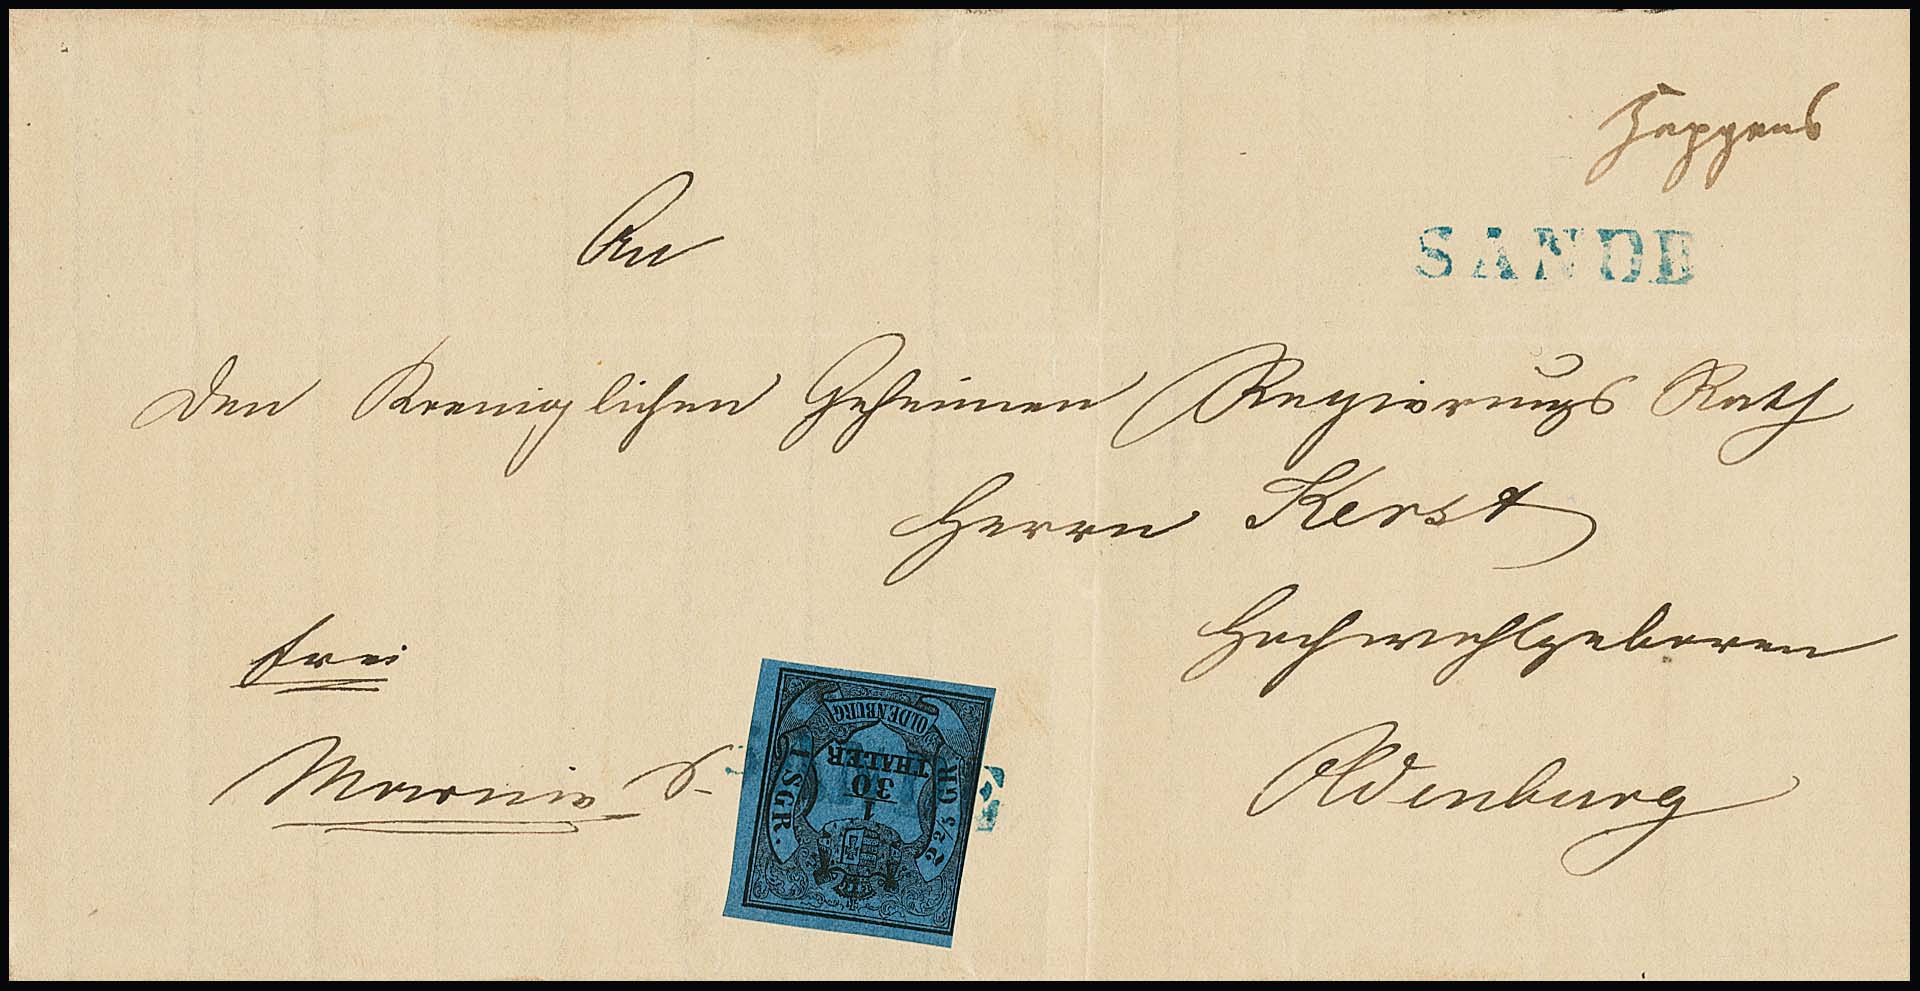 Heppens
SANDE
An
den Koeniglichen Geheimen Regierungs Rath
Herrn Kerst
Hochwohlgeboren
frei
Marine S.
Oldenburg
OLDENBURG
1/30
THALER
1 SGR.
2 2/5 GR.